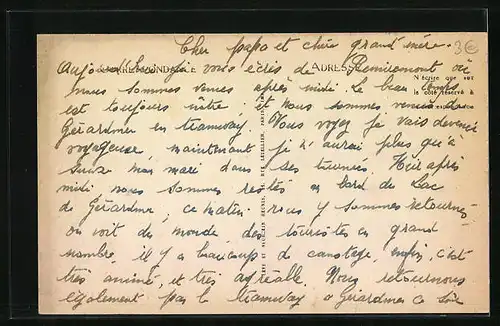 3€
Cher papa et chère grand'mère.
CORRESPONDANCE ADRESSE
Aujourd'hui je vous écris de Remiremont où
nous sommes venus après midi. Le beau temps
N'écrire que sur
le côté réservé à
est toujours nôtre : et nous sommes venus de
Gérardmer en tramway. Vous voyez je vais devenir
voyageuse, maintenant je n'aurai plus qu'à
suivre mon mari dans ses tournées. Hier après
midi nous sommes restés au bord du Lac
de Gérardmer, ce matin nous y sommes retournés
on voit du monde, des touristes en grand
nombre, il y a beaucoup de canotage, enfin, c'est
très animé, et très agréable. Nous retournons
également par le tramway à Gérardmer ce soir